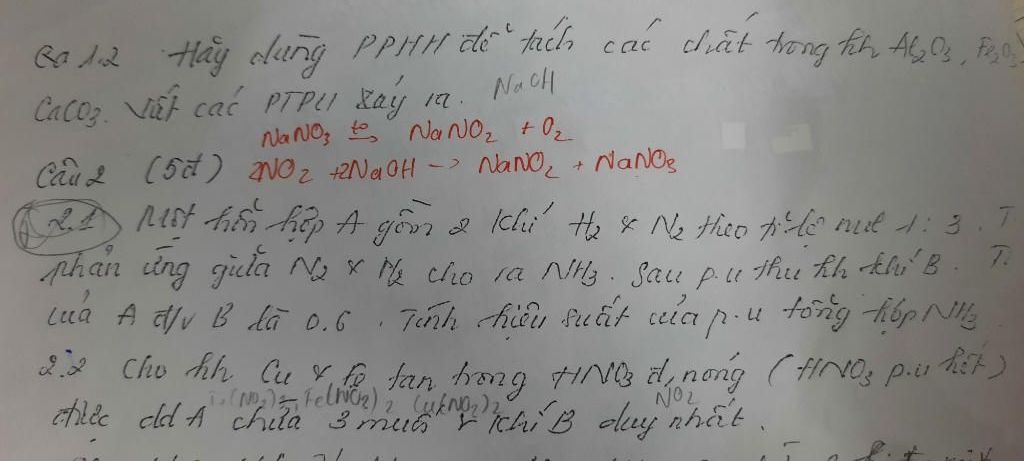 Ca 1.2 Hãy dùng PPHH để tách các chất trong hh Al₂O₃, Fe₂O₃
CaCO₃. Viết các PTPU xảy ra. NaOH
NaNO₃ t° → NaNO₂ + O₂
Câu 2 (5đ) 2NO₂ + 2NaOH → NaNO₂ + NaNO₃
2.1 Một hỗn hợp A gồm 2 khí H₂ & N₂ theo tỉ lệ mol 1:3. T
phản ứng giữa N₂ & H₂ cho ra NH₃. Sau p.u thu hh khí B. T
của A đ/v B là 0.6. Tính hiệu suất của p.u tổng hợp NH₃
2.2 Cho hh Cu & Fe tan trong HNO₃ đ, nóng (HNO₃ p.u hết)
Fe(NO₃)₂ Cu(NO₃)₂ NO₂
được dd A chứa 3 muối & khí B duy nhất.